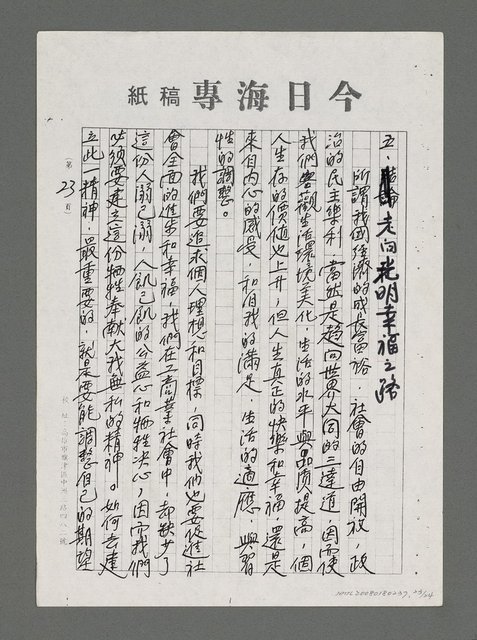 今日海專稿紙
五、走向光明幸福之路
所謂我國經濟的成長富裕，社會的自由開放，政
治的民主樂利，當然是趨向世界大同的三達道，因而使
我們客觀生活環境美化，生活的水平與品質提高，個
人生存的價值也上升，但人生真正的快樂和幸福，還是
來自內心的感受，和自我的滿足，生活的適應，與習
性的調整。
我們要追求個人理想和目標，同時我們也要促進社
會全面的進步和幸福，我們在工商業社會中，却缺少了
這份人溺己溺，人飢己飢的公益心和犧牲決心，因而我們
必須要建立這份犧牲奉献大我無私的精神。如何去建
立此一精神，最重要的，就是要能調整自己的期望
第23頁
校址：高雄市旗津區中洲三路四八二號
NMTL20080180237, 23/24